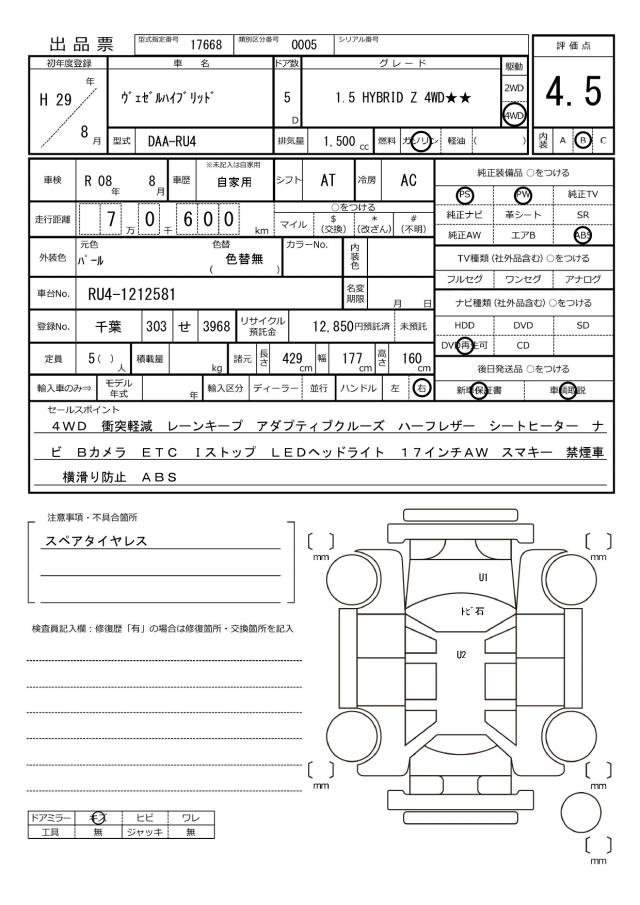 出品票 型式指定番号 17668 類別区分番号 0005 シリアル番号
初年度登録 車名 ドア数 グレード 駆動 評価点
H 29 年 8 月 ヴェゼルハイブリッド 5 D 1.5 HYBRID Z 4WD★★ 2WD 4WD 4.5
型式 DAA-RU4 排気量 1.500 cc 燃料 ガソリン 軽油 ( ) 内装 A B C
車検 R 08 年 8 月 車歴 ※未記入は自家用 自家用 シフト AT 冷房 AC
走行距離 7 万 0 千 6 0 0 km ○をつける
マイル $ (交換) * (改ざん) # (不明)
外装色 元色 パール 色替 色替無 ( ) カラーNo. 内装色
車台No. RU4-1212581 名変期限 月 日
登録No. 千葉 303 せ 3968 リサイクル預託金 12,850円預託済 未預託
定員 5 ( ) 人 積載量 kg 諸元 長さ 429 cm 幅 177 cm 高さ 160 cm
輸入車のみ⇒ モデル年式 年 輸入区分 ディーラー 並行 ハンドル 左 右
純正装備品 ○をつける
PS PW 純正TV
純正ナビ 革シート SR
純正AW エアB ABS
TV種類(社外品含む)○をつける
フルセグ ワンセグ アナログ
ナビ種類(社外品含む)○をつける
HDD DVD SD
DVD再生可 CD
後日発送品 ○をつける
新車保証書 車輌取説
セールスポイント
4WD 衝突軽減 レーンキープ アダプティブクルーズ ハーフレザー シートヒーター ナ
ビ Bカメラ ETC Iストップ LEDヘッドライト 17インチAW スマキー 禁煙車
横滑り防止 ABS
注意事項・不具合箇所
スペアタイヤレス
検査員記入欄：修復歴「有」の場合は修復箇所・交換箇所を記入
[ ] mm [ ] mm
U1
トビ石
U2
[ ] mm [ ] mm
[ ] mm
ドアミラー キズ ヒビ ワレ
工具 無 ジャッキ 無